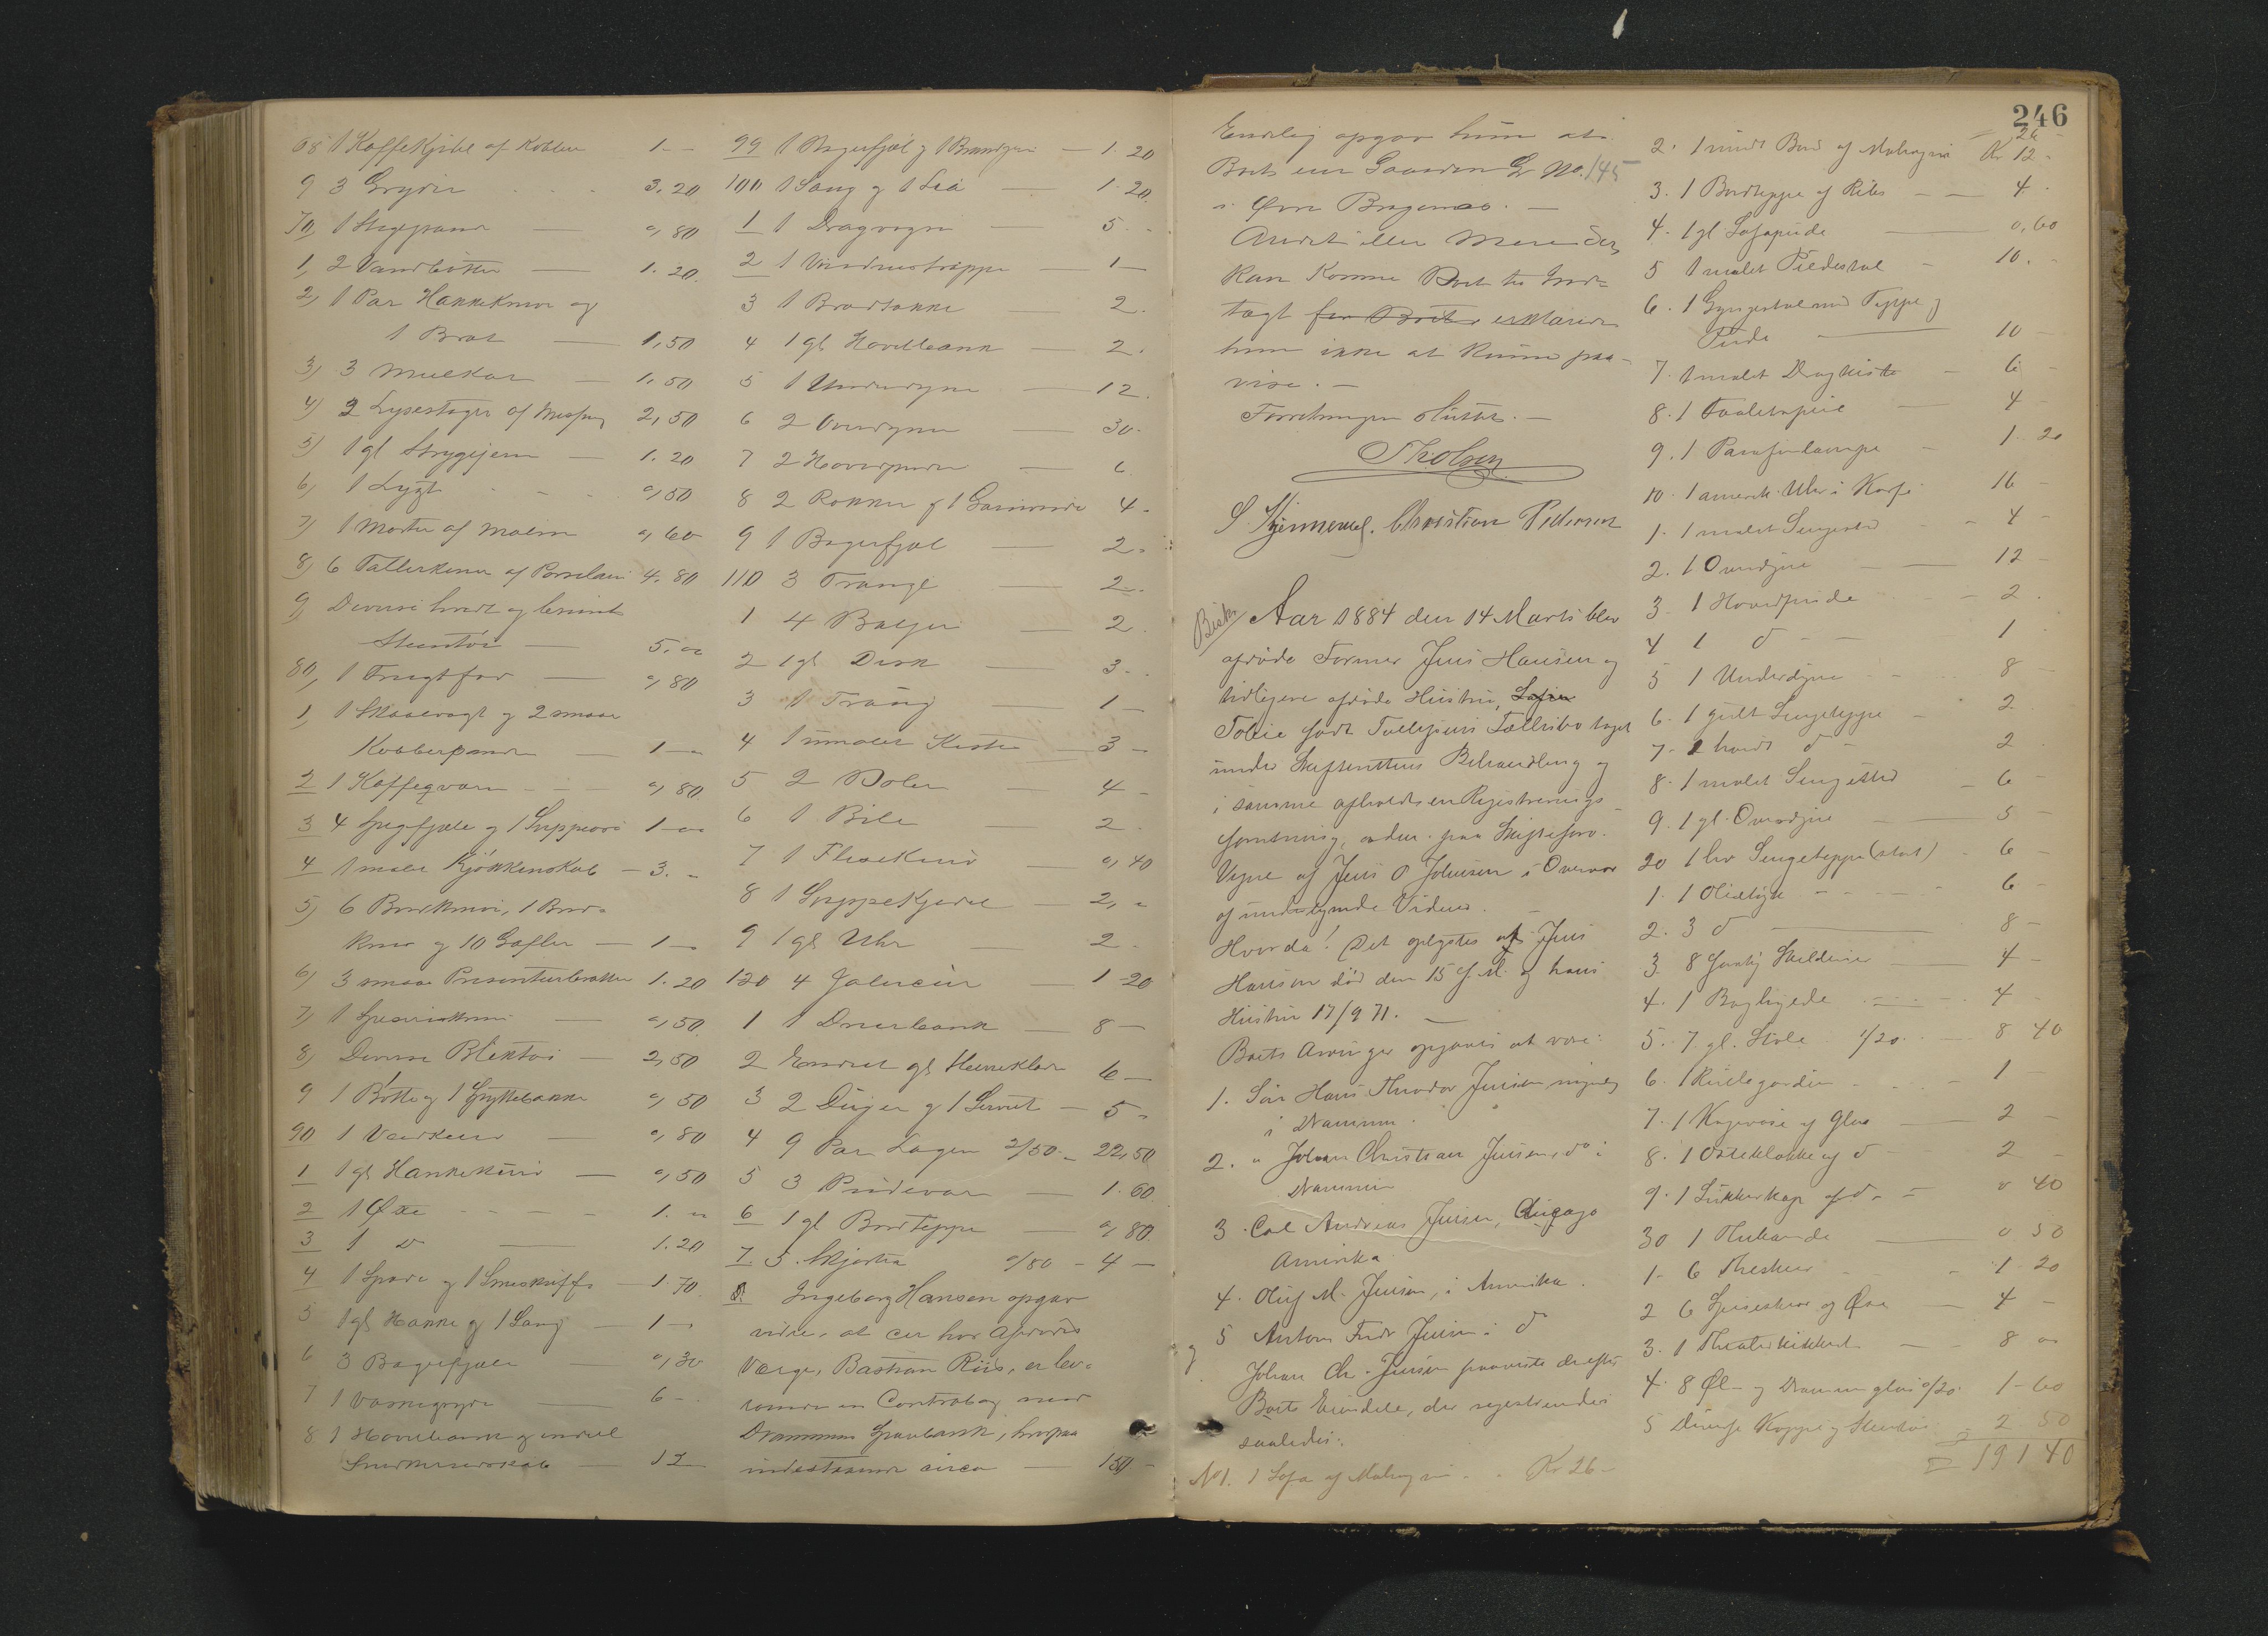 68 1 Kaffekjedel af Kobber 1. -
9 3 Gryder 3,20
70, 1 Stegepande 0,80
1, 2 Vandbøtter 1.20
2, 1 Par Hakkekniver og
1 Bræt 1,50
3) 3 Mulkar 1,50
4) 3 Lysestager af Messing 2,50
5) 1 gl Strygejern 1.20
6) 1 Lygt 0,50
7) 1 Morter af Malm 0,60
8) 6 Tallerkener af Porselain 4,80
9) Diverse hvidt og brunt
Steentøi 5,00
80, 1 Frugtfad 0,80
1, 1 Skaalvægt og 2 smaa
Kobberpander 1 -
2 1 Kaffeqværn 0,80
3 4 Spegfjæle og 1 Suppeøse 1 -
4 1 malet Kjøkkenskab 3. -
5) 6 Bordknive, 1 Brød-
kniv og 10 Gafler 1 -
6) 3 smaa Presenterbrætter 1.20
7) 1 0,50
8) Diverse Bliktøi 2,50
9 1 Bøtte og 1 0,50
90 1 0,80
1 1 gl Hakkekniv 0,50
2 1 Øxe 1. -
3 1 do 1.20
4 1 Spade og 1 1.70
5 1 gl Hakke og 1 Saug 1 -
6 3 Bagerfjæle 0,30
7 1 Vaskegryde 6 -
8 1 Høvelbænk og endel
Snedkerredskab 12
99 1 Bagerfjæl og 1 1.20
100 1 Saug og 1 Lia 1.20
1 1 Dragvogn 5 -
2 1 Vinduestrappe 1 -
3 1 Brødbakke 2.
4 1 gl Høvelbænk 2.
5 1 Underdyne 12.
6 2 Overdyner 30 -
7 2 Hovedpuder 6
8 2 Rokker og 1 4 -
9 1 Bagerfjæl 2 -
110 3 2 -
1 4 Baljer 2
2 1 gl Disk 3 -
3 1 1 -
4 1 umalet Kiste 3 -
5 2 4 -
6 1 Bile 2
7 1 0,40
8 1 Suppekjedel 2, -
9 1 gl Uhr 2 -
120 4 Jalucier 1 20
1 1 8 -
2 Endeel gl 6 -
3 2 Duger og 1 Serviet 5 -
4 9 Par Lagen 2/50 - 22,50
5 3 Pudevar 1.60
6 1 gl Bordteppe 0,80
7. 5 Skjorter 0/80 - 4 -
Ingeborg Hansen opgav
videre, at der hos Afdødes
Værge, Bastian Riis, er be-
roende en Contrabog med
Drammens Sparebank, hvorpaa
indestaaende circa 150 -
246
Endelig opgav hun at
Boet eier Gaarden Gr No. 145
i Øvre Bragernæs. -
Andet eller Mere der
kan komme Boet til Ind-
tægt for Boet erklærede
hun ikke at kunne paa-
vise. -
Forretningen sluttet. -
Tholsen
S. Christian Pedersen
Aar 1884 den 14 Marts blev
afdøde Former Jens Hansen og
tidligere afdøde Hustru, Sofie
Tolie født Tollefsens Fællesbo taget
under Skifterettens Behandling og
i samme afholdt en Registrerings-
forretning,
Vegne af Jens O Johnsen i Overvær
af undertegnede Vidner.
Hvorda! Det oplystes at Jens
Hansen død den 15 f. M. og hans
Hustru 17/9 71.
Boets Arvinger opgaves at være:
1. Søn Hans Theodor Jensen, myndig
i Drammen.
2. " Johan Christian Jensen, do i
Drammen
3. Carl Andreas Jensen, Chicago
Amerika
4. Oluf M. Jensen, i Amerika.
5 Anton Fredr Jensen i do
og Johan Chr. Jensen paaviste derefter
Boets Eiendele, der registreredes
saaledes:
No 1. 1 Sofa af Mahogni Kr 26 -
26
2. 1 rundt Bord af Mahogni Kr 12 -
3. 1 Bordteppe af Ribs 4 -
4. 1 gl Sofapude 0,60
5 1 malet Piedestal 10. -
6. 1 Gyngestol med Teppe og
Pude 10 -
7. 1 malet Dragkiste 6 -
8. 1 Toiletspeil 4 -
9. 1 Parafinlampe 1.20
10. 1 amerik. Uhr i 16 -
1. 1 malet Sengested 4 -
2. 1 Overdyne 12 -
3. 1 Hovedpude 2.
4 1 do 1 -
5 1 Underdyne 8 -
6. 1 guult Sengeteppe 2
7. 1 hvidt do 2
8. 1 malet Sengested 6 -
9. 1 gl. Overdyne 5 -
20 1 hv Sengeteppe (stort) 6 -
1. 1 Oliestyk 6 -
2. 3 do 8 -
3. 8 forskj Skilderier 4 -
4. 1 4 -
5. 7 gl. Stole 1/20. 8 40
6. 1 Rullegardin 1 -
7. 1 Kagevase af Glas 2 -
8. 1 Osteklokke af do 2 -
9. 1 Sukkerkop af do 0 40
30 1 Thekande 0 50
1. 6 Theskeer 1 20
2 6 Spiseskeer og Øse 4 -
3. 1 Theaterkikkert 8 00
4. 8 Øl- og Dramme glas 0/20 1-60
5 Diverse Kopper og Steentøi 2 50
191 40